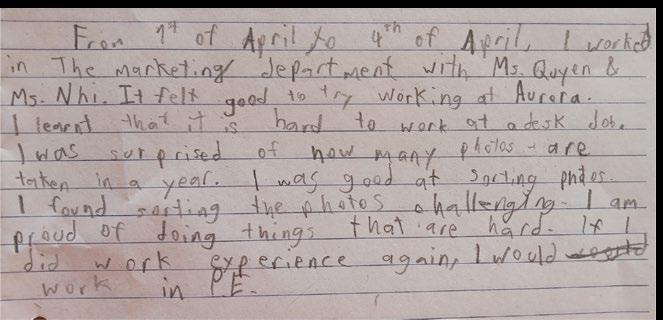 From 1st of April to 4th of April, I worked
in The marketing department with Ms. Quyen &
Ms. Nhi. It felt good to try working at Aurora.
I learnt that it is hard to work at a desk Job.
I was surprised of how many photos - are
taken in a year. I was good at sorting photos.
I found sorting the photos challenging. I am
proud of doing things that are hard. If I
did work experience again, I would
work in P.E.